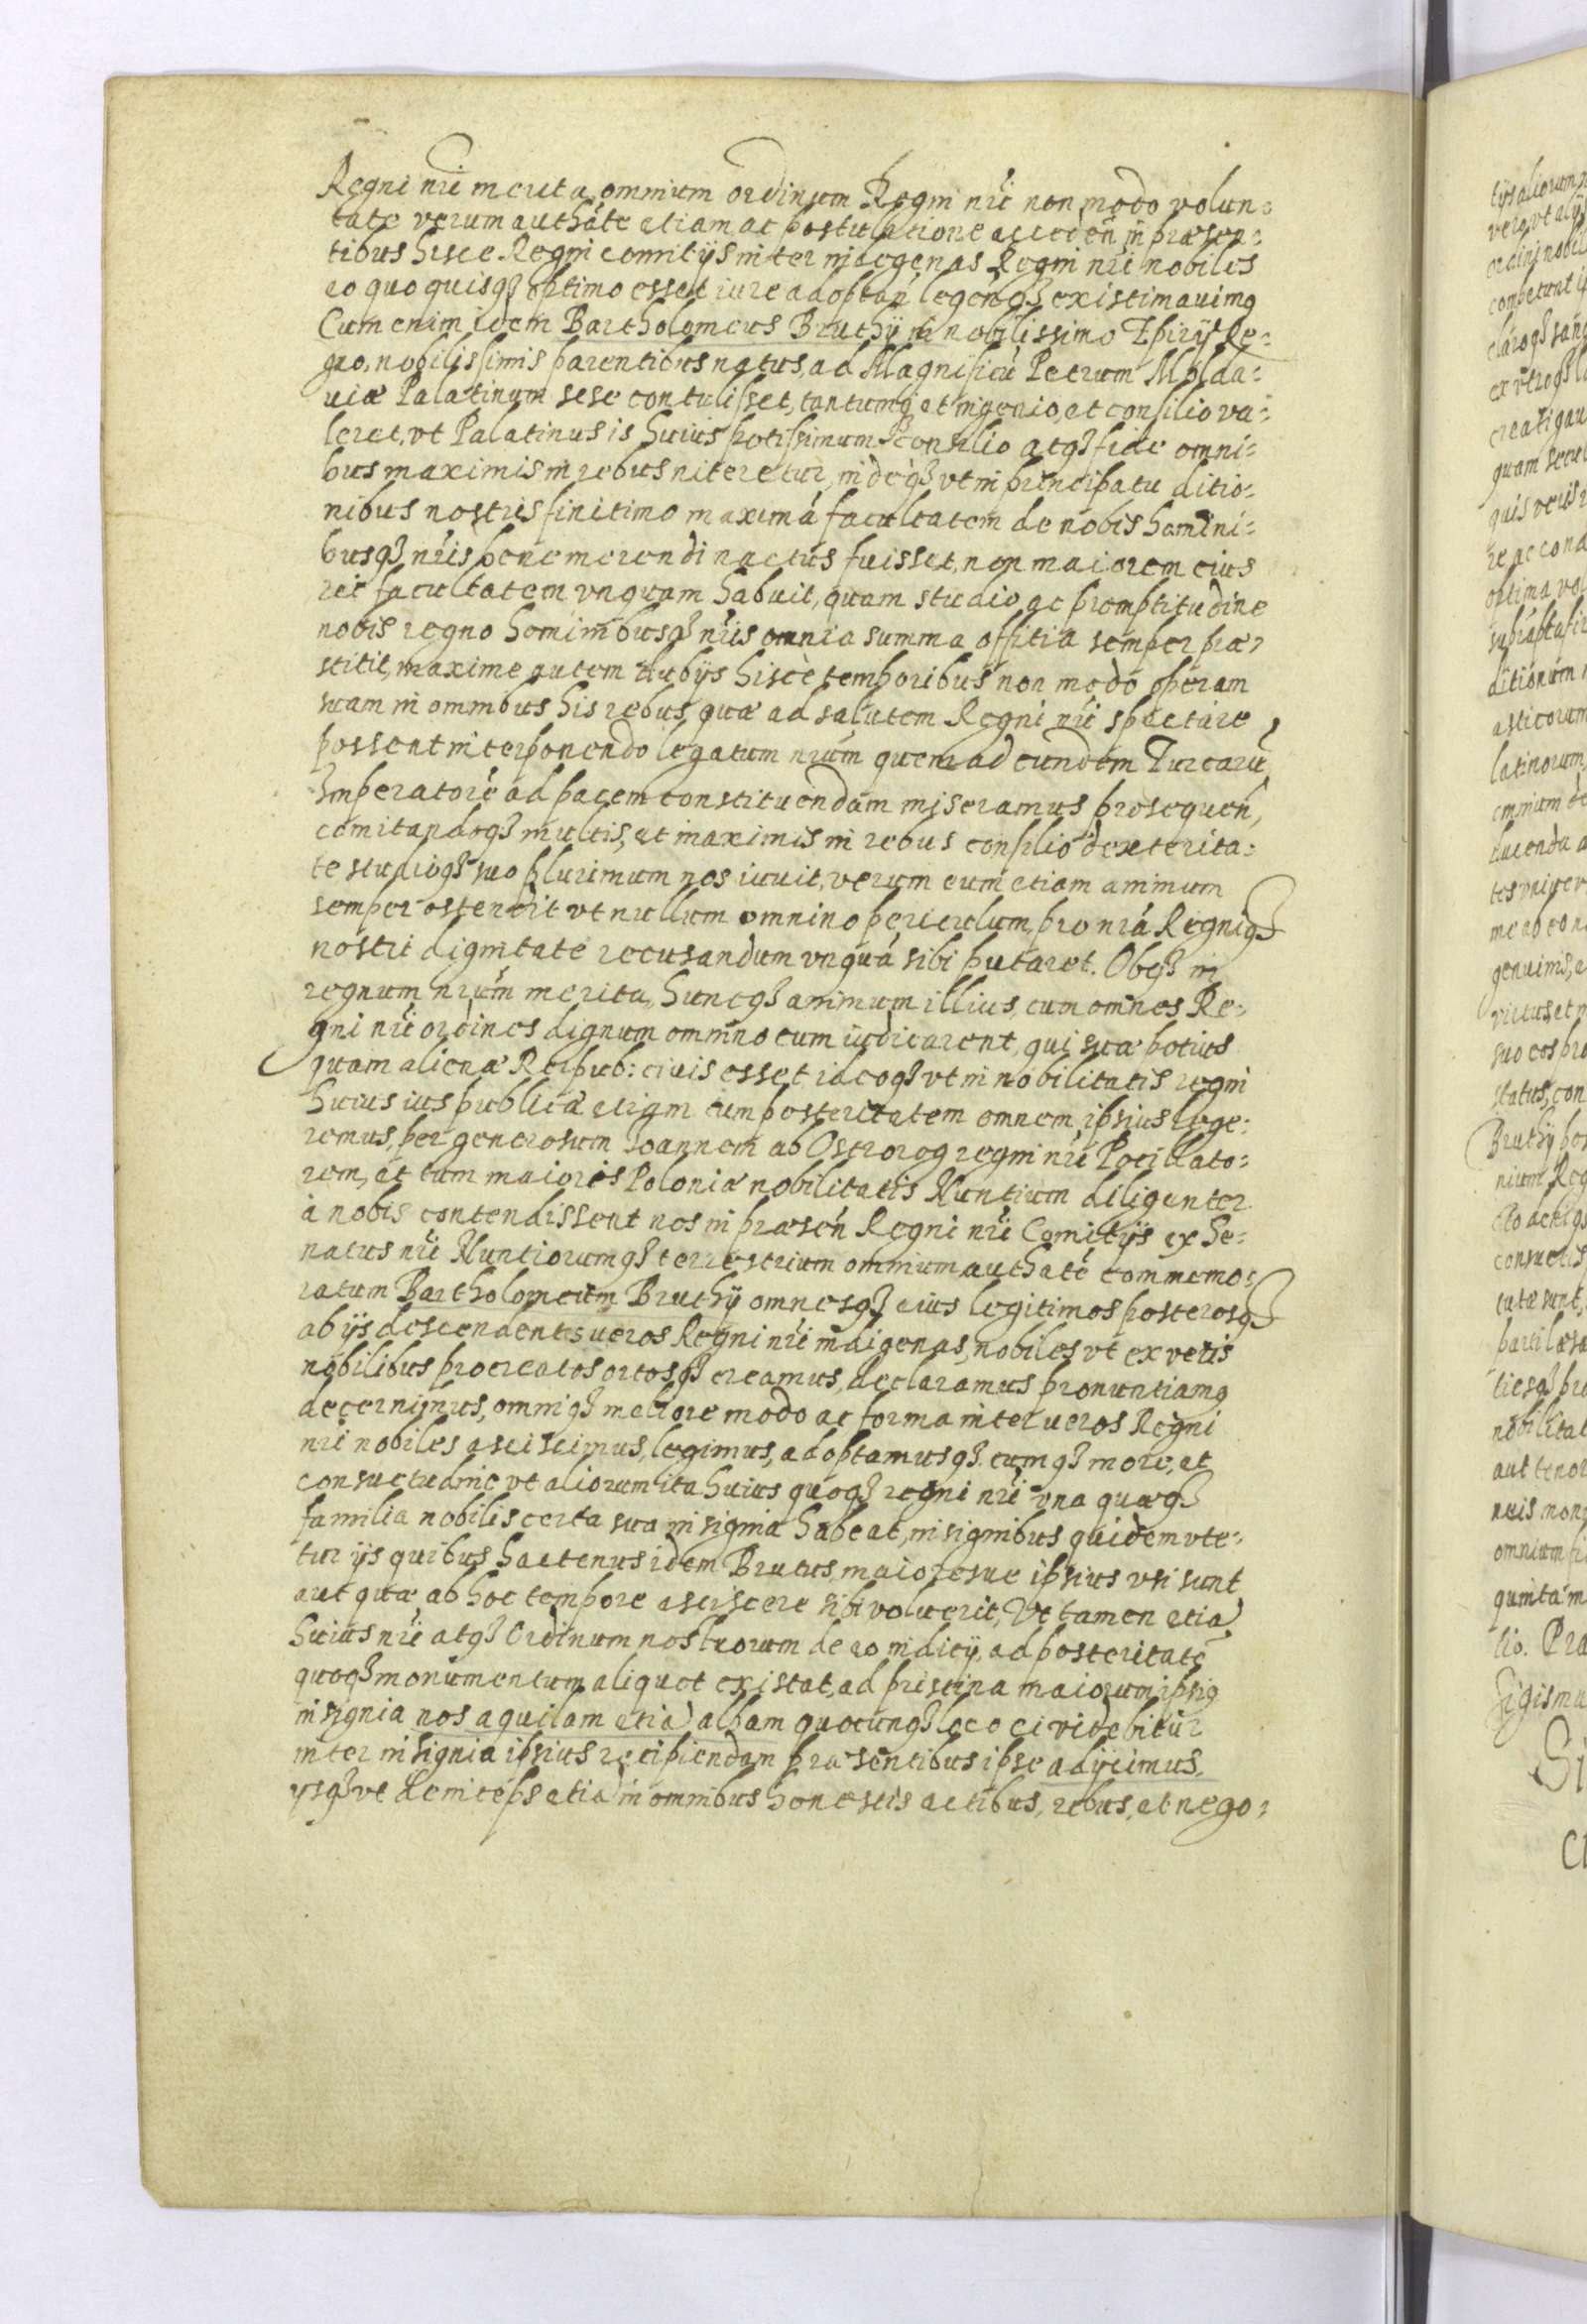 Regni nri merita, omnium ordinum Regni nri non modo volun:
tate verum authãte etiam ac postulatione acceden in præsen:
tibus hisce Regni comitijs inter indegenas Regni nri nobiles
eo quo quisq3 optimo esset iure adoptan legenq3 existimauimg
Cum enim idem Bartholomeus Bruthÿ in nobilissimo Epirÿ Re:
gno, nobilissimis parentibus natus, ad Magnificũ Petrum Molda:
uiæ Palatinum sese contulisset, tantumq3 et ingenio, et consilio va:
leret, vt Palatinus is huius potissimum consilio atq3 fide omni:
bus maximis in rebus niteretur, indeq3 vt in principatu ditio:
nibus nostris finitimo maximã facultatem de nobis homini:
busq3 nris benemerendi nactus fuisset, non maiorem eius
rei facultatem vnquam habuit, quam studio ac promptitudine
nobis regno hominibusq3 nris omnia summa offitia semper præ:
stitit, maxime autem dubijs hisce temporibus non modo operam
suam in omnibus his rebus, quæ ad salutem Regni nri spectare
possent interponendo legatum nrum quem ad eundem Turcarũ
Imperatorẽ ad pacem constituendam miseramus prosequen,
comitandoq3 multis, et maximis in rebus consilio dexterita:
te studioq3 suo plurimum nos iuuit, verum eum etiam animum
semper ostendit vt nullum omnino periculum, pro nrã Regniq3
nostri dignitate recusandum vnquã sibi putaret. Obq3 in
regnum nrum merita, huncq3 animum illius, cum omnes Re:
gni nri ordines dignum omnino eum iudicarent, qui suæ potius
quam alienæ Reipub: ciuis esset ideoq3 vt in nobilitatis regni
huius ius publicæ etiam cum posteritatem omnem ipsius lege:
remus, per generosum Ioannem ab Ostrorog regni nri Pocillato:
rem, et tum maioris Poloniæ nobilitatis Nuntium diligenter
à nobis contendissent nos in præsen Regni nri Comitijs ex Se:
natus nri Nuntiorumq3 terrestrium omnium authatẽ commemo:
ratum Bartholomeum Bruthÿ omnesq3 eius legitimos posterosq3
ab ijs descendentes ueros Regni nri indigenas, nobiles vt ex veris
nobilibus procreatos ortosq3 creamus, declaramus pronuntiamg
decernimus, omniq3 meliore modo ac forma inter ueros Regni
nri nobiles asciscimus, legimus, adoptamusq3. cumq3 more, et
consuetudine vt aliorum ita huius quoq3 regni nri vna quæq3
familia nobilis certa sua insignia habeat, insignibus quidem vte:
tur ijs quibus hactenus idem Brutus, maioresue ipsius vsi sunt
aut quæ ab hoc tempore asciscere sibi voluerit, Vt tamen etiã
huius nri atq3 Ordinum nostrorum de eo indicij, ad posteritatẽ
quoq3 monumentum aliquot existat, ad pristina maiorum ipsig
insignia nos aquilam etiã albam quocunq3 loco ei videbitur
inter insignia ipsius recipiendam præsentibus ipse adijcimus.
ysq3 vt deinceps etiã in omnibus honestis actibus, rebus, et nego: